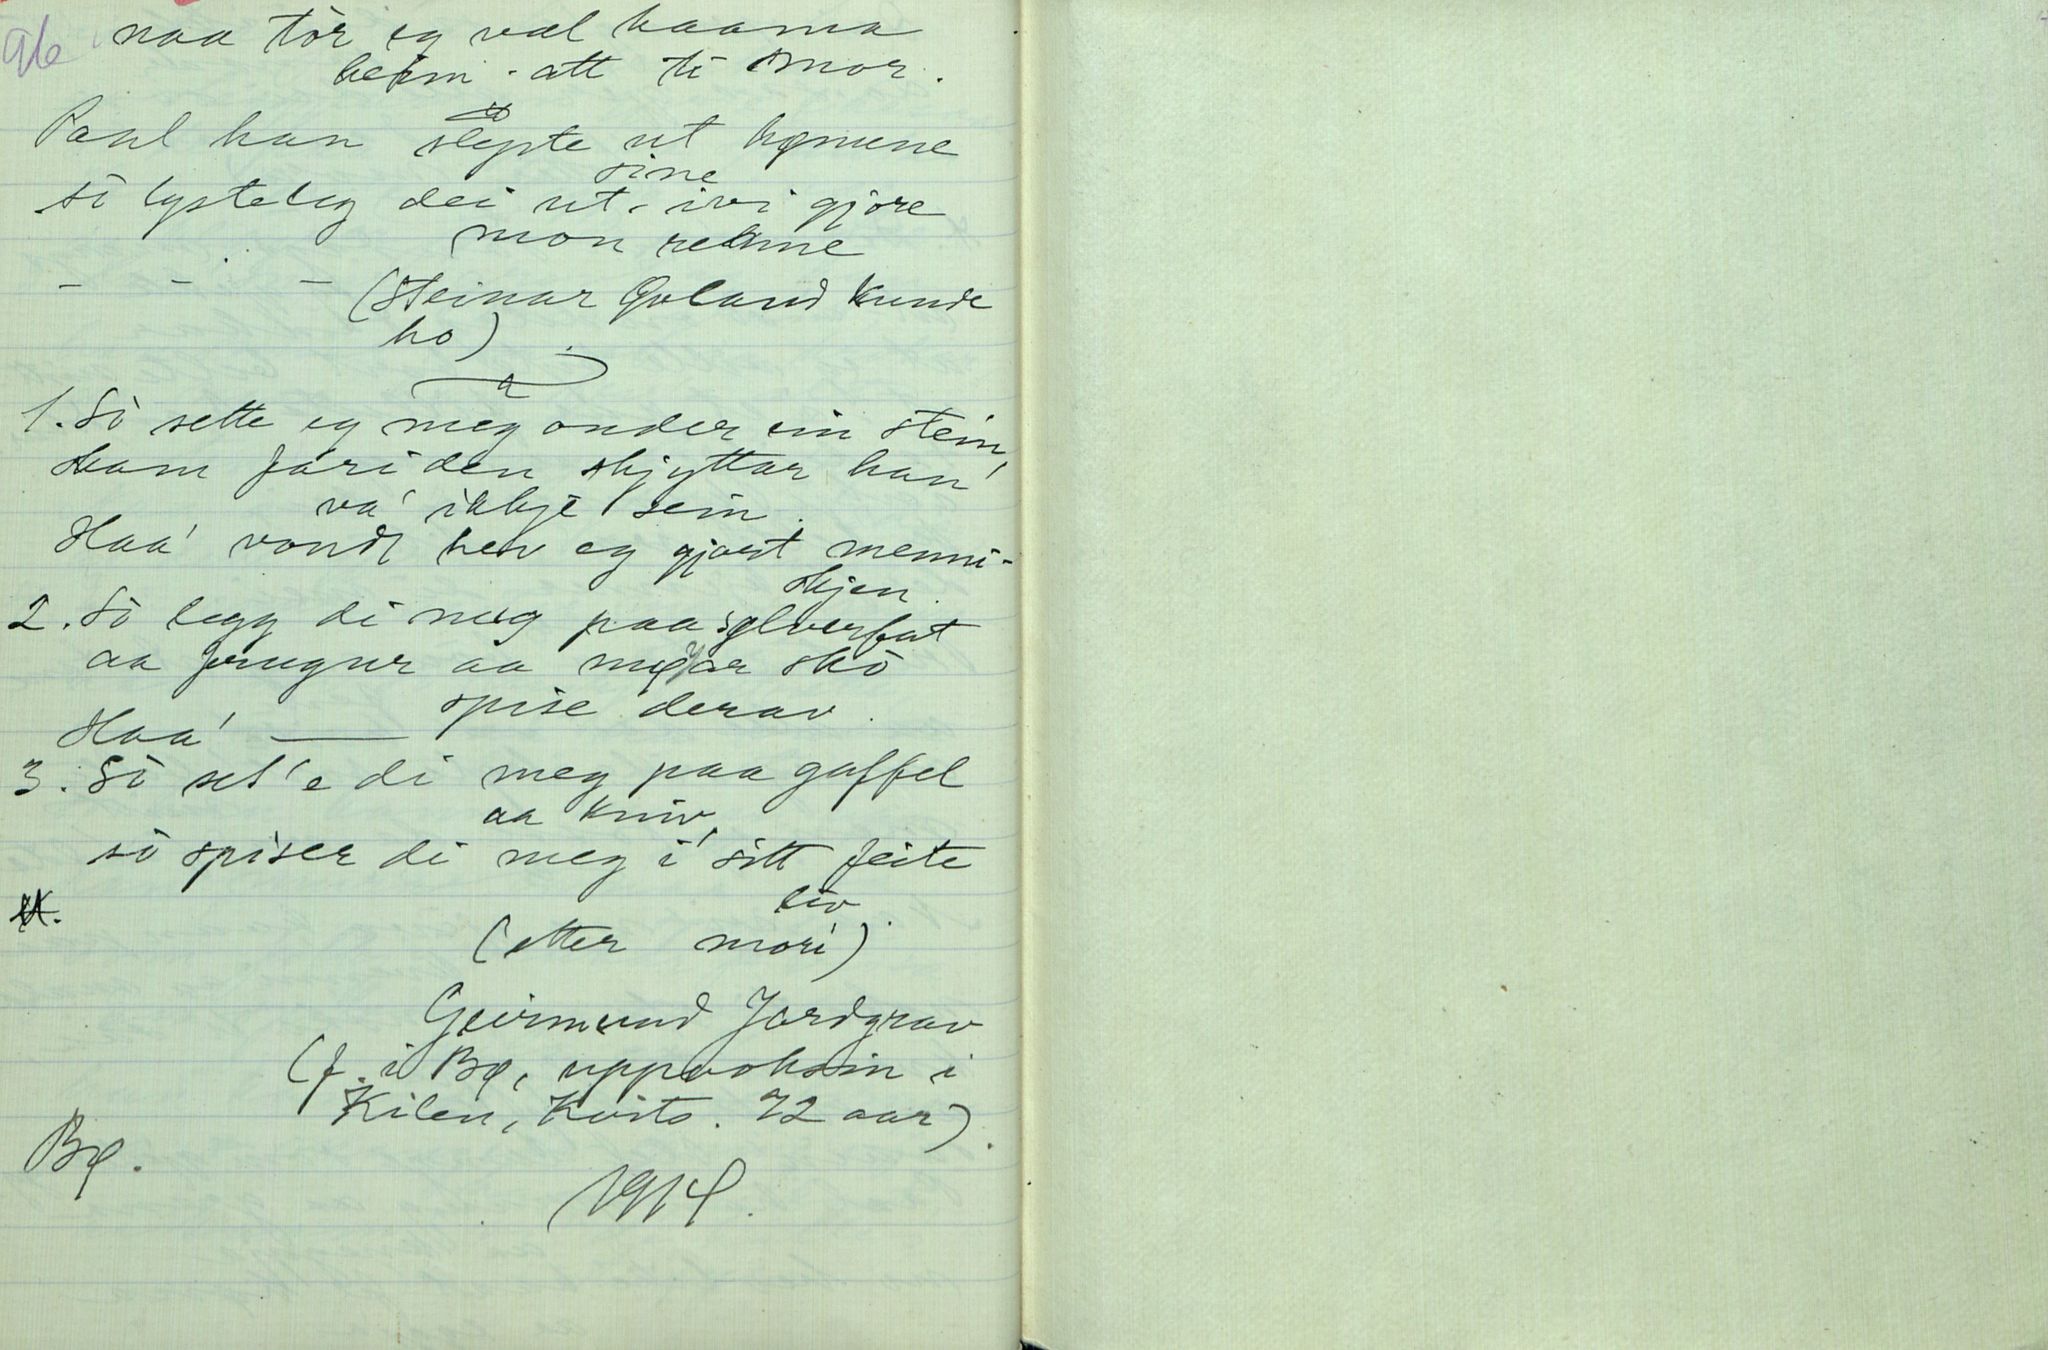 96 naa tòr eg væl kaama
heim att ti mor.
Paul han slepte ut hønune
sine
sò lysteleg dei ut ivi gjøre
mon renne
- - - (Steinar Øoland kunde
ho).
1. Sò sette eg meg onder ein stein,
kam farì den skjyttar han
va' ikkje sein.
Haa' vondt hev eg gjort menni-
skjen.
2. Sò legg di meg paa sølverfat
aa frugur aa møyar skò
spise derav.
Haa' ——
3. Sò set'e di meg paa gaffel
aa kniv,
sò spiser di meg i' sitt feite
liv.
(etter mori)
Geirmund Jordgrav
(f. i Bø, uppvoksin i
Kilen, Kvits. 72 aar).
Bø.
1914.